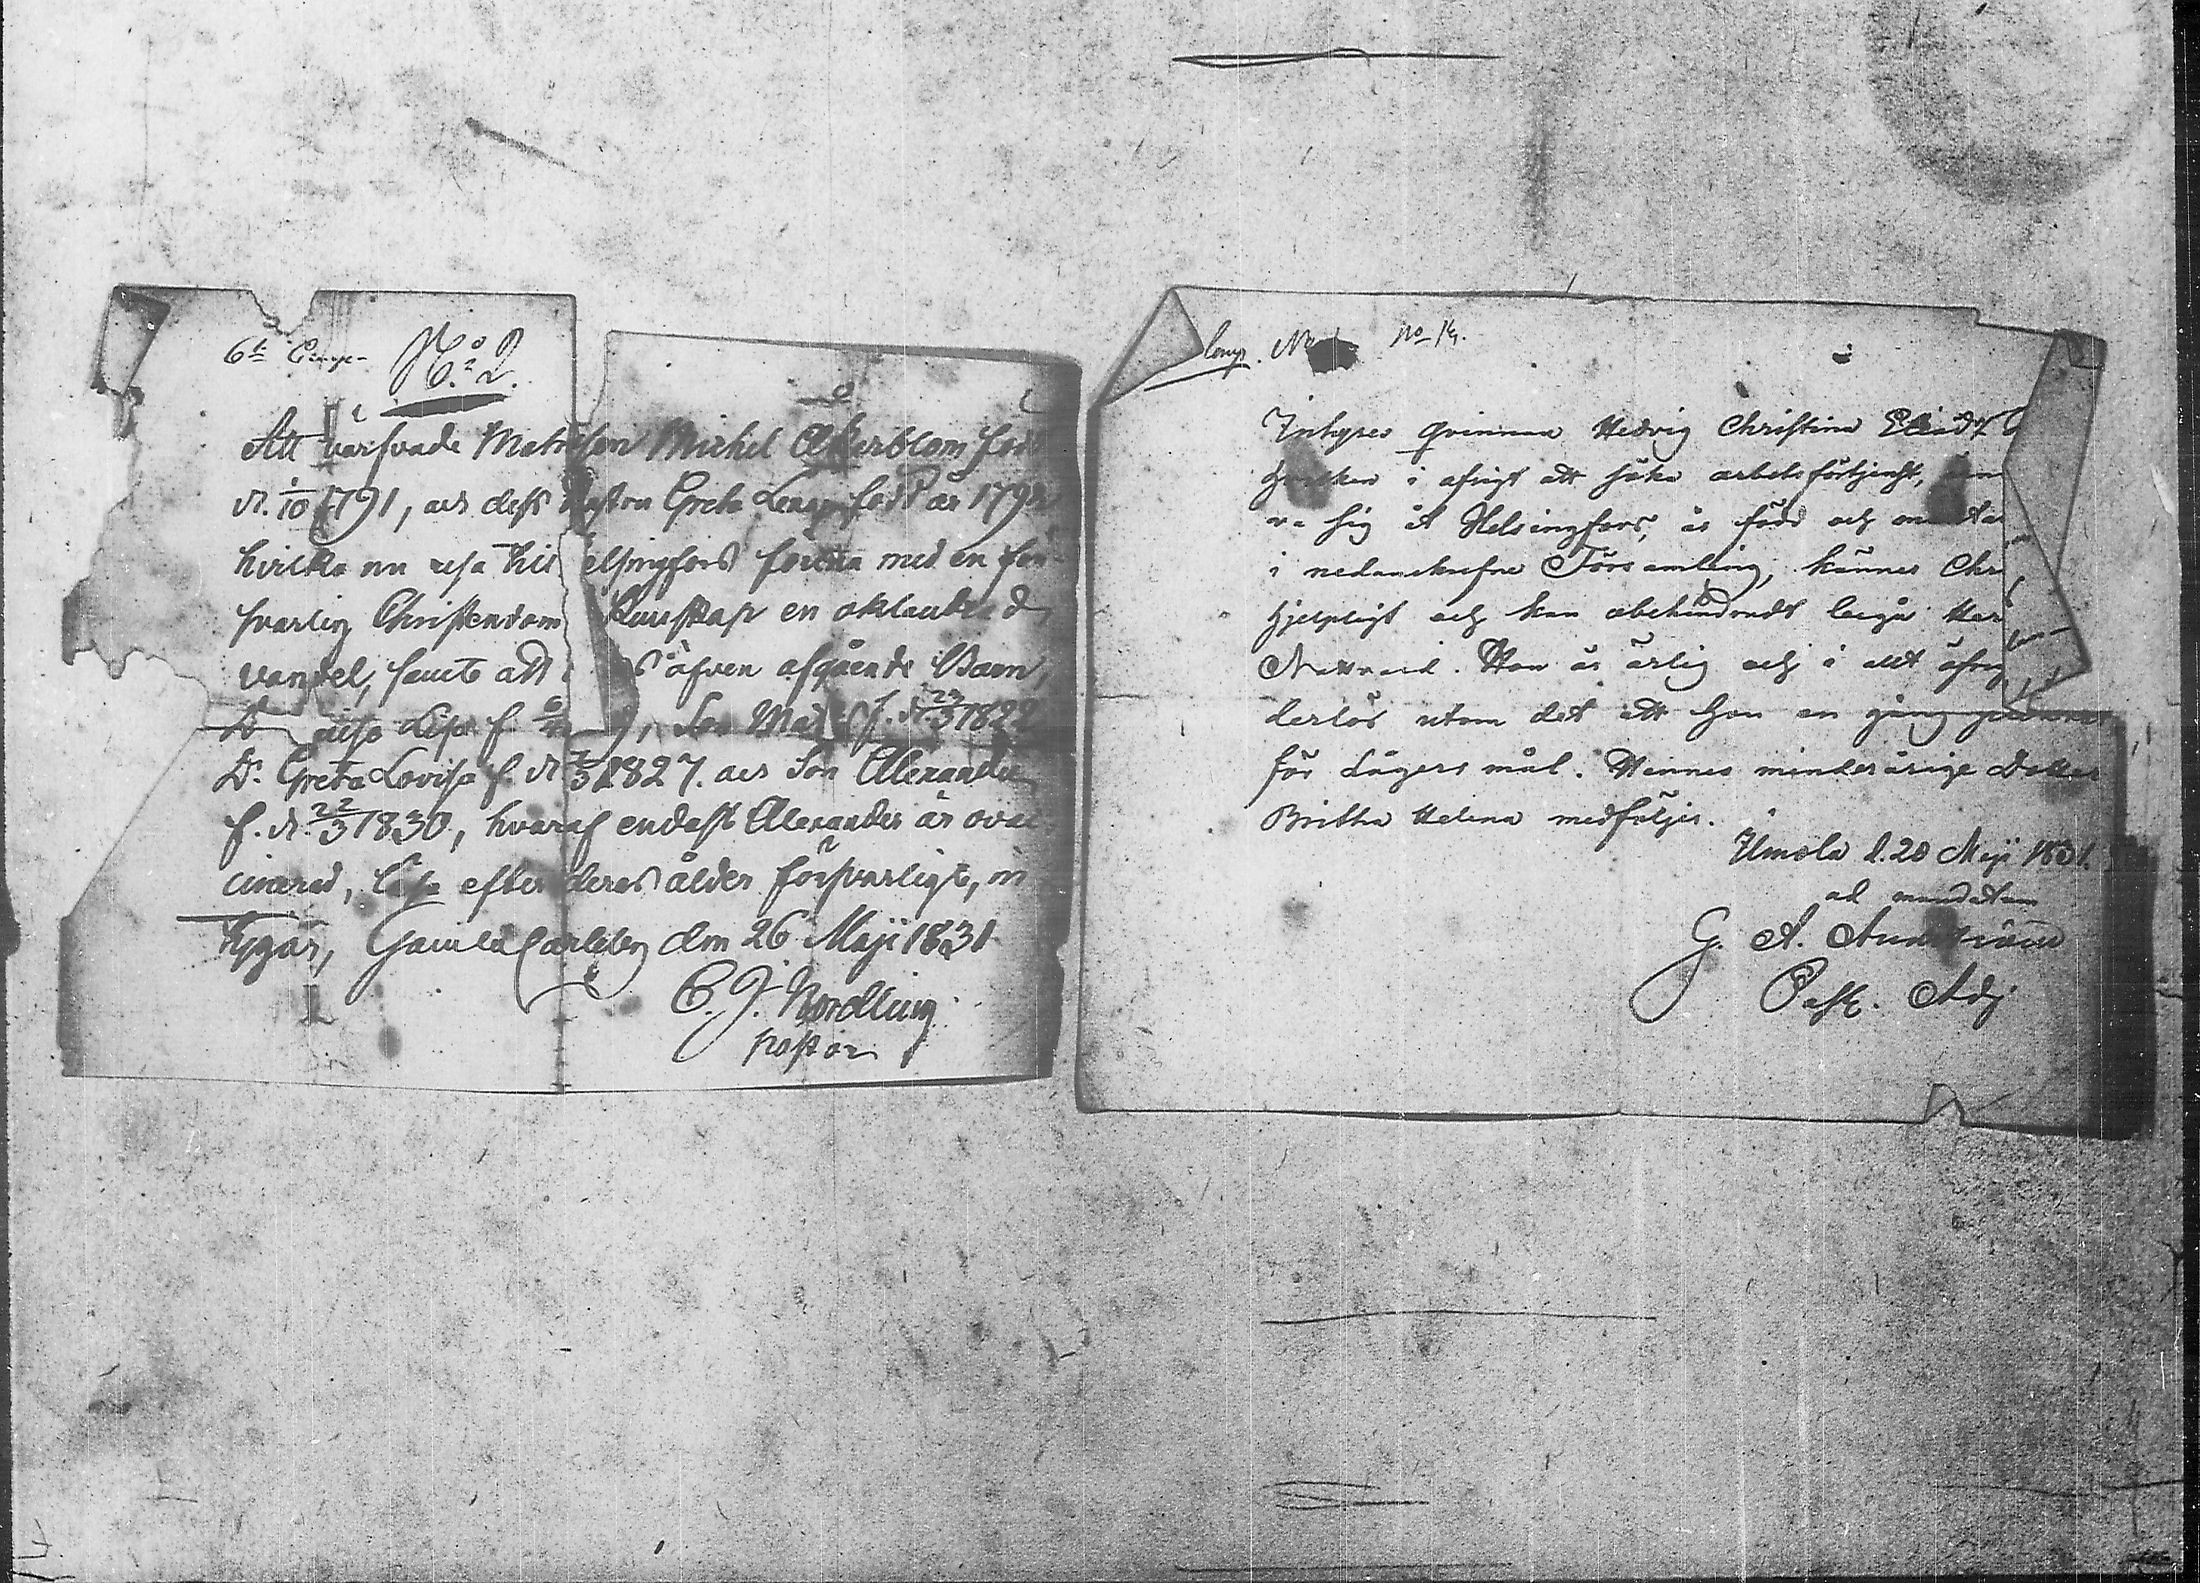 6te Comp.
No 2.
Att värfvade Matrosen Michel Åkerblom föd
d. 1/10 1791, och dess Hustru Greta född år 1792
hvilka nu resa till Helsingfors förena med en för-
svarlig Christendoms Kunskap en oklandrad
vandel, samt att äfven afgående Barn,
Lisa f. Son f. d. 23/3 1822
Dr. Greta Lovisa f. d. 1827. och Son Alexander
f. d. 22/3 1830, hvaraf endast Alexander är ovac-
cinerad, läsa efter deras ålder försvarligt, in-
tygar, Gamla Carleby den 26 Maji 1831.
C. J. Nordling
Pastor
Comp. No 14.
Inhyses qvinnan Hedvig Christina
hvilken i afsigt att söka arbetsförtjenst,
sig åt Helsingfors, är född och
i nedanskrefne Församling, känner Chr
hjelpligt och kan obehindradt begå Her
Nattvard. Hon är ärlig och i allt öfrigt
derlös utom det att hon en gång
för Lägersmål. Hennes minderåriga Dotter
Britha Helena medföljer.
Ilmola d. 20 Maji 1831.
ad mandatum
G. A.
Past. Adj